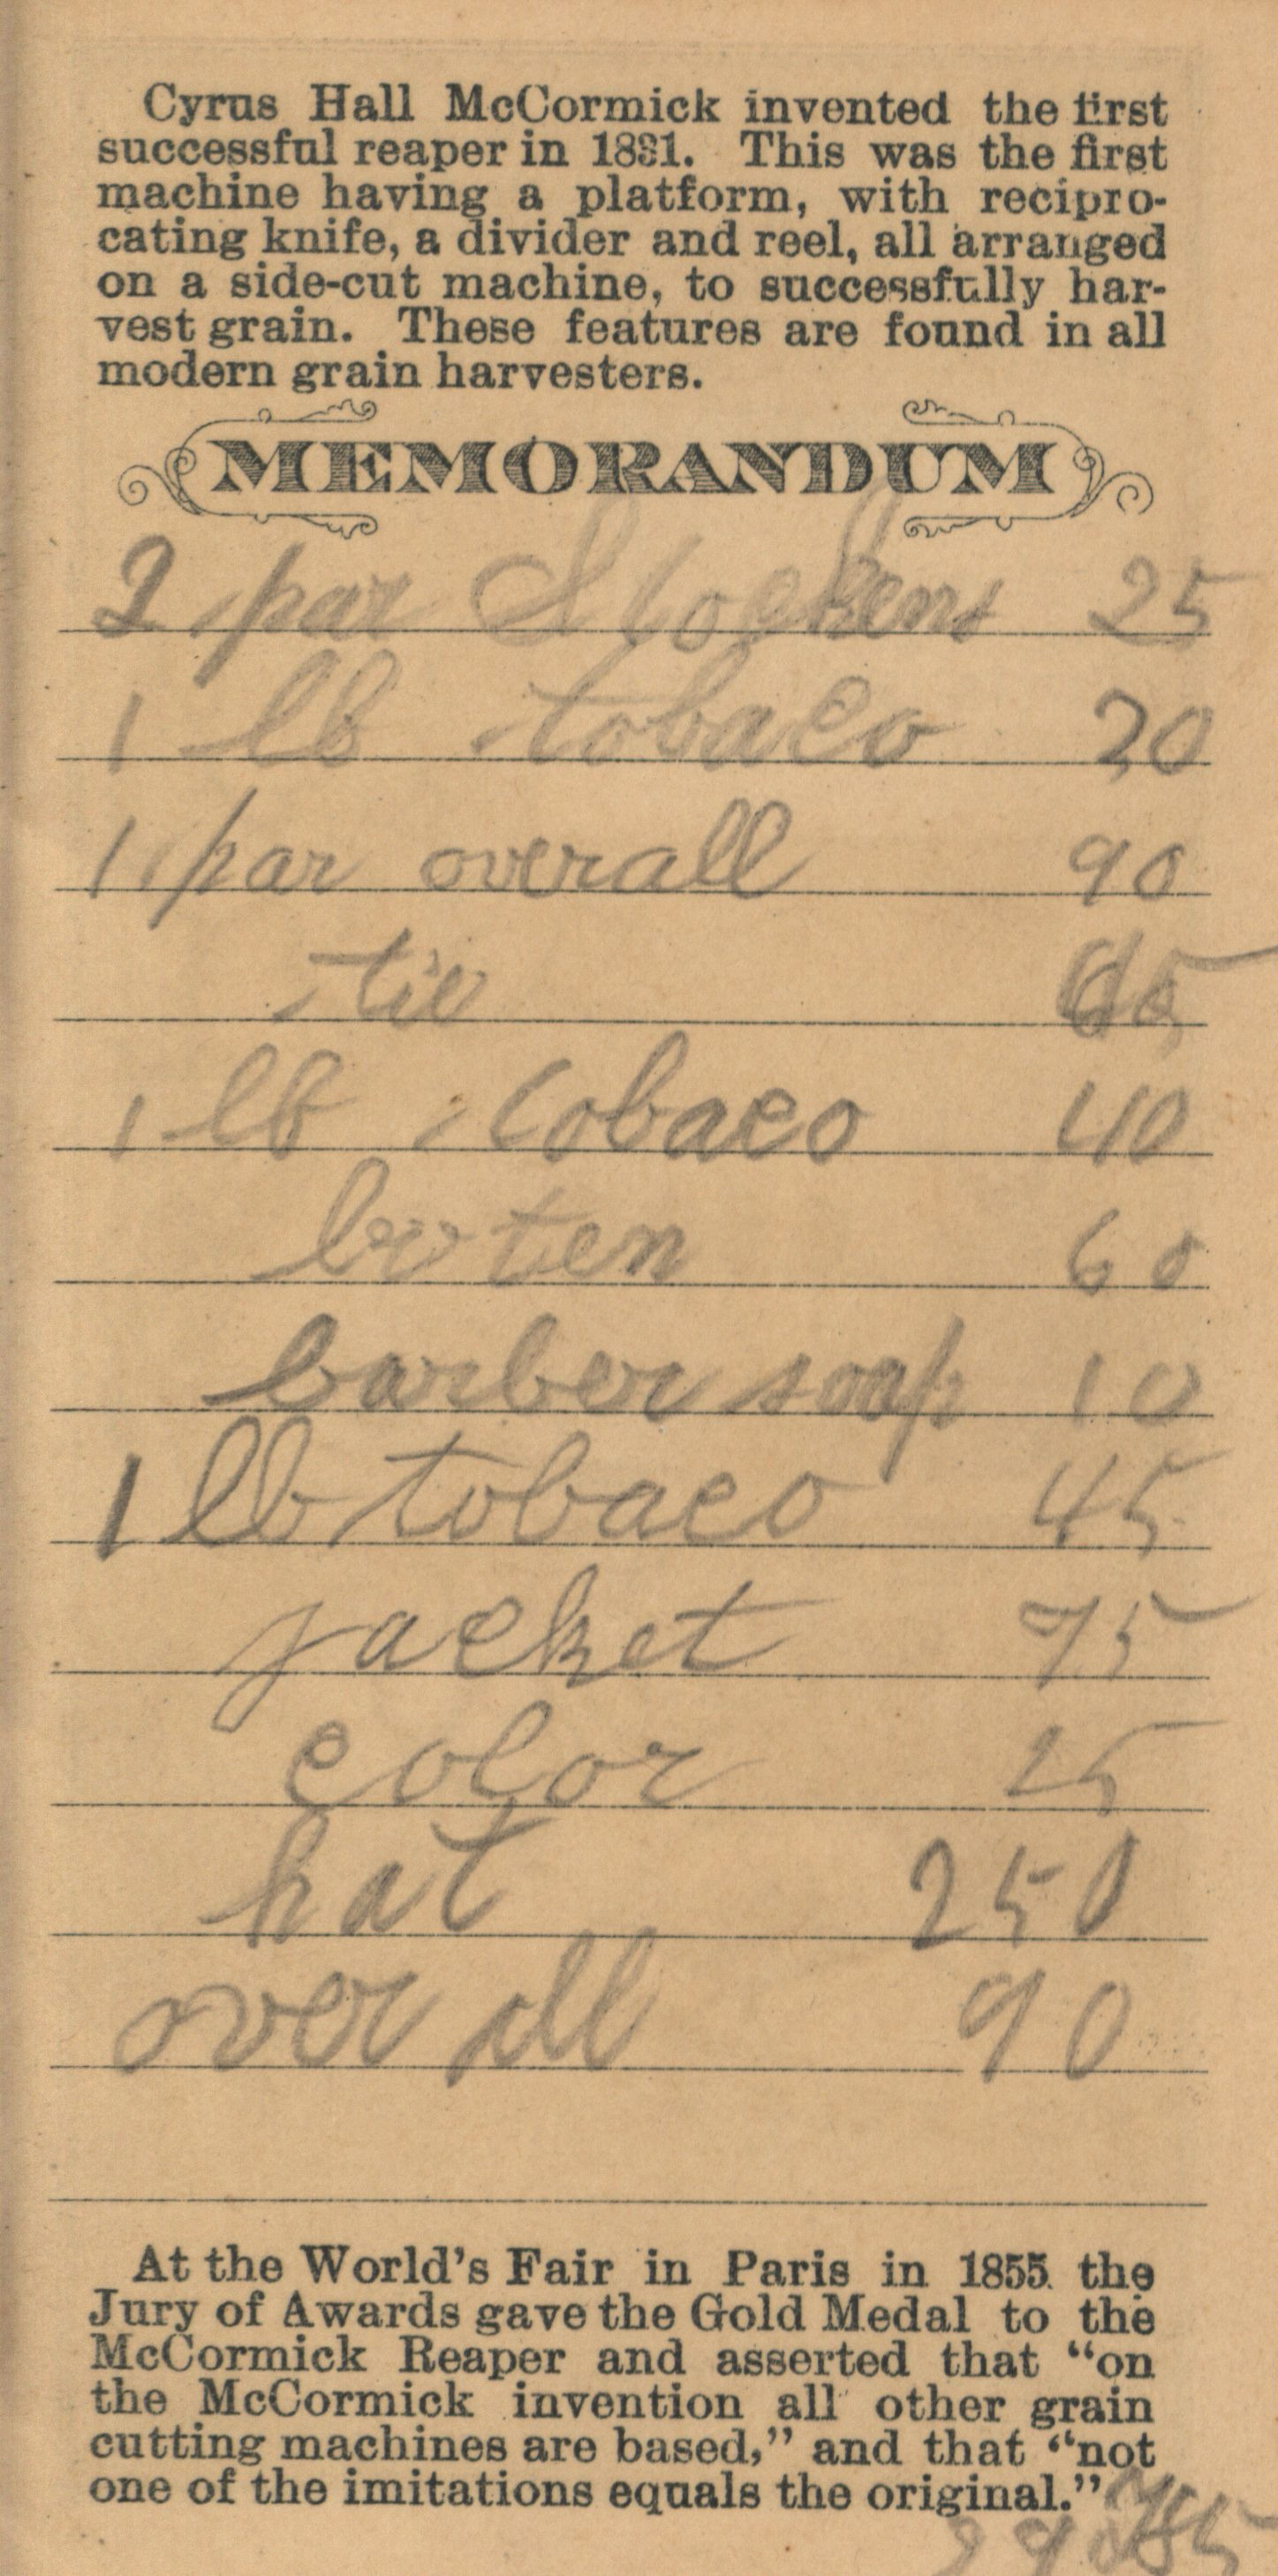 Cyrus Hall McCormick invented the first
successful reaper in 1831. This was the first
machine having a platform, with recipro-
cating knife, a divider and reel, all arranged
on a side-cut machine, to successfully har-
vest grain. These features are found in all
modern grain harvesters.
MEMORANDUM
2 par Stockens 25
1 lb tobaco 20
1 par overall 90
tie
1 lb tobaco 40
60
barber soap 10
1 lb tobaco 45
jacket 75
color 25
hat 250
over all 90
At the World's Fair in Paris in 1855 the
Jury of Awards gave the Gold Medal to the
McCormick Reaper and asserted that “on
the McCormick invention all other grain
cutting machines are based,” and that “not
one of the imitations equals the original.”